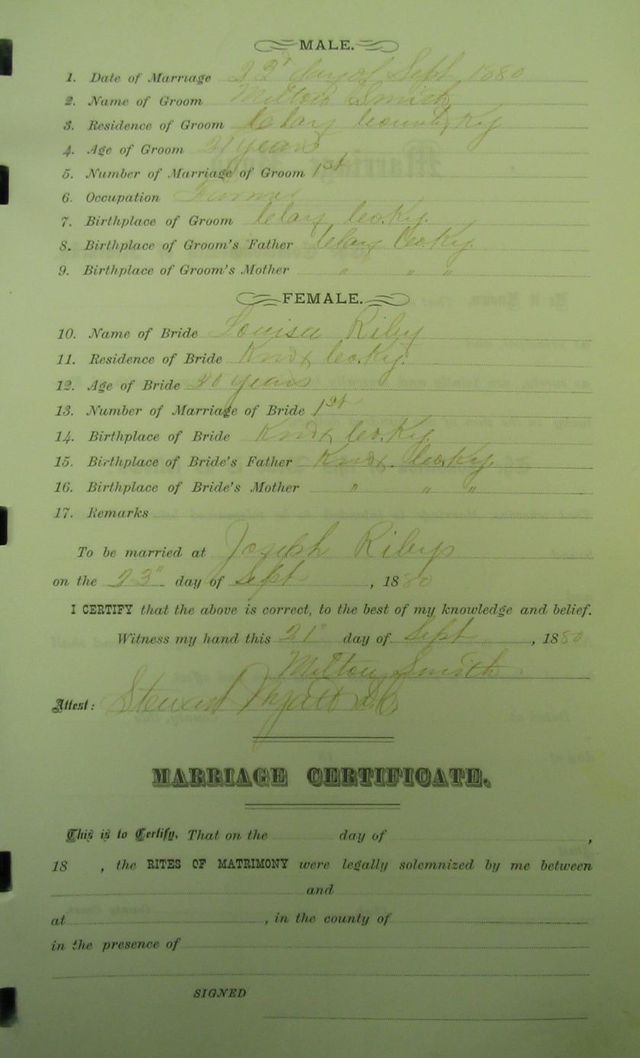 MALE.
1. Date of Marriage 22" day of Sept 1880
2. Name of Groom Milton Smith
3. Residence of Groom Clay County Ky
4. Age of Groom 21 years
5. Number of Marriage of Groom 1st
6. Occupation Farmer
7. Birthplace of Groom Clay Co Ky.
8. Birthplace of Groom's Father Clay Co Ky.
9. Birthplace of Groom's Mother " " "
FEMALE.
10. Name of Bride Louisa Riley
11. Residence of Bride Knox Co Ky.
12. Age of Bride 20 years
13. Number of Marriage of Bride 1st
14. Birthplace of Bride Knox Co Ky
15. Birthplace of Bride's Father Knox Co Ky.
16. Birthplace of Bride's Mother " " "
17. Remarks
To be married at Joseph Rileys
on the 23" day of Sept, 1880
I CERTIFY that the above is correct, to the best of my knowledge and belief.
Witness my hand this 21" day of Sept, 1880
Milton Smith
Attest: Stewart
MARRIAGE CERTIFICATE.
This is to Certify, That on the day of ,
18 , the RITES OF MATRIMONY were legally solemnized by me between
and
at , in the county of
in the presence of
SIGNED